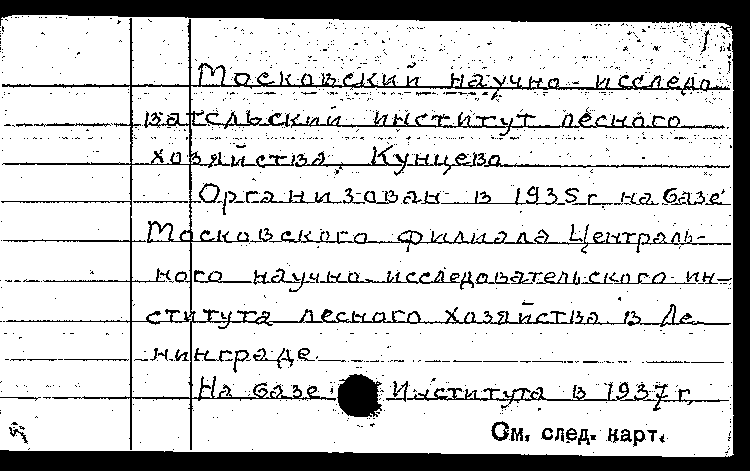 1
Московский научно-исследо
вательский институт лесного
хозяйства, Кунцево
Организован в 1935 г. на базе
Московского филиала Централь-
ного научно-исследовательского ин-
ститута лесного хозяйства в Ле-
нинграде.
На базе Института в 1937 г.
См. след. карт.